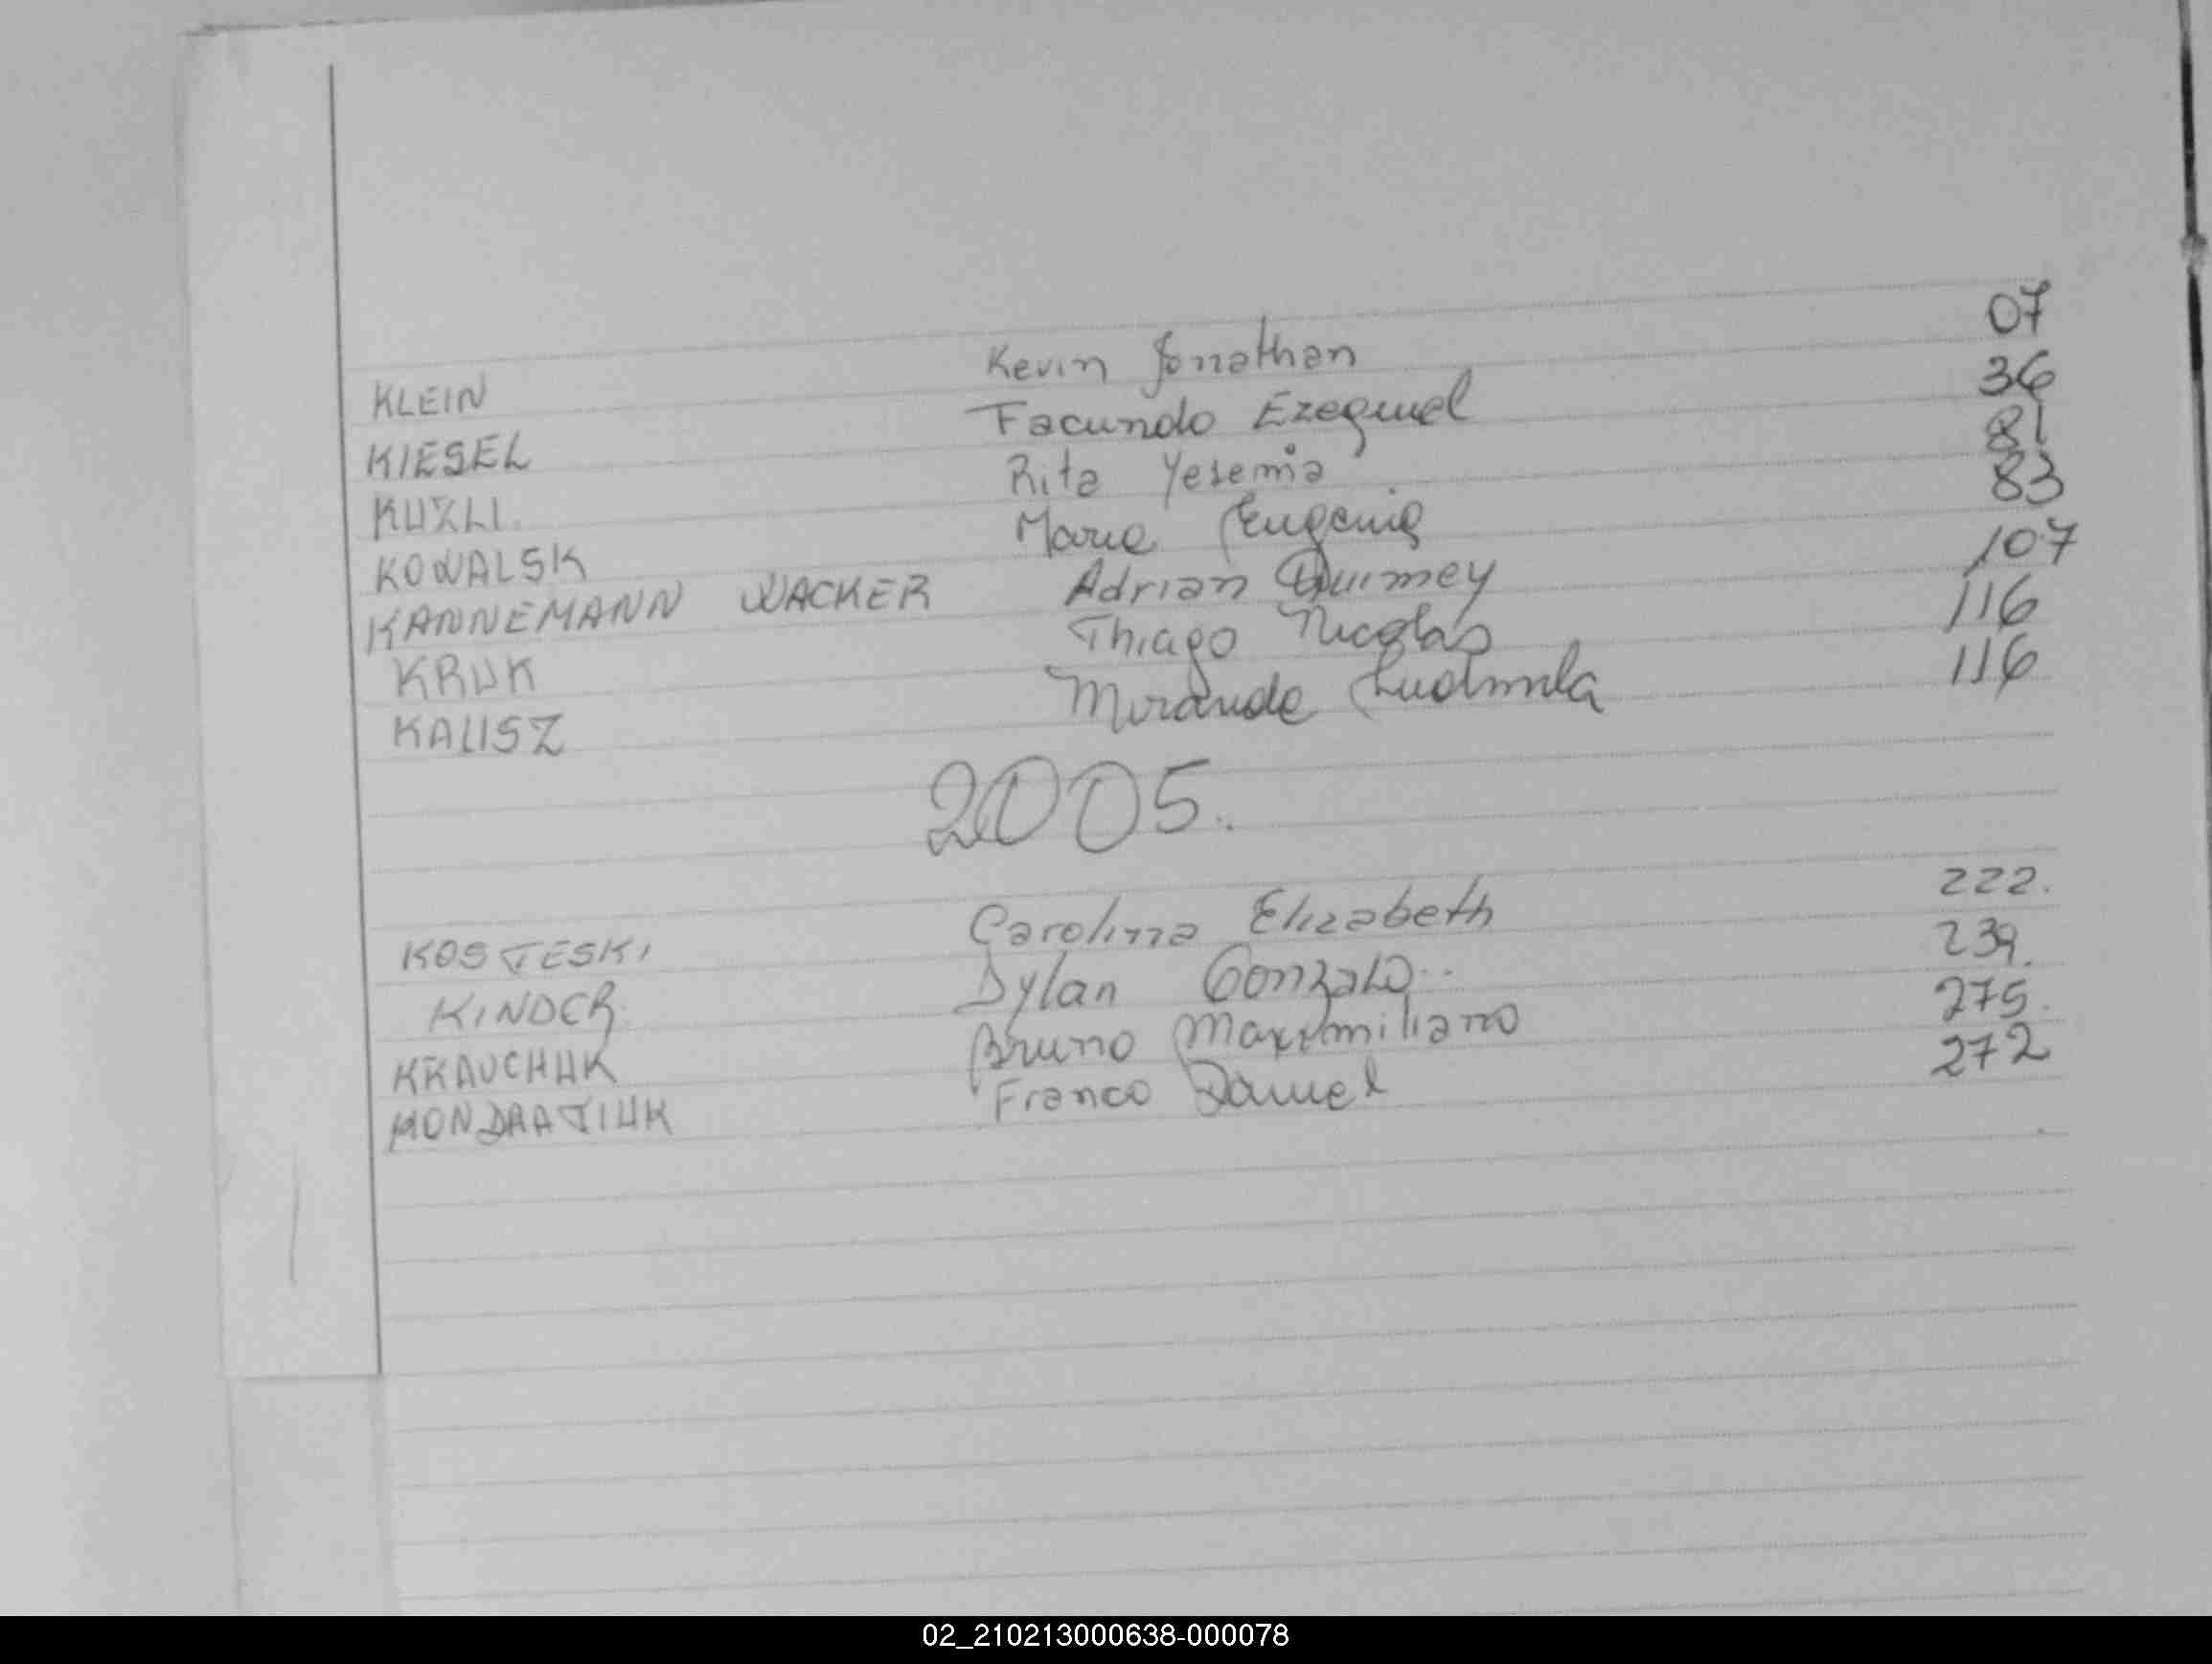 KLEIN Kevin Jonathan 07
KIESEL Facundo Ezequiel 36
KUZLI Rita Yesemia 81
KOWALSK Maria Eugenia 83
KANNEMANN WACKER Adrian Quimey 107
KRUK Thiago Nicolas 116
KALISZ Miranda Ludmila 116
2005.
KOSTESKI Carolina Elizabeth 222.
KINDER Dylan Gonzalo 239.
KRAUCHUK Bruno Maximiliano 275.
KONDRATIUK Franco Daniel 272
02_210213000638-000078